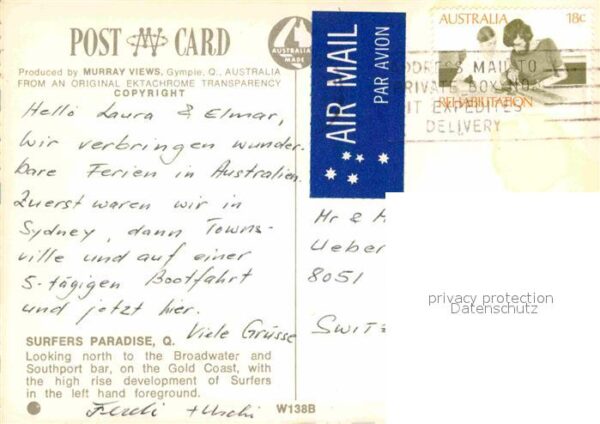 POST CARD
AUSTRALIAN MADE
Produced by MURRAY VIEWS, Gympie, Q., AUSTRALIA
FROM AN ORIGINAL EKTACHROME TRANSPARENCY
COPYRIGHT
Hello Laura & Elmar,
wir verbringen wunder-
bare Ferien in Australien.
Zuerst waren wir in
Sydney, dann Towns-
ville und auf einer
5-tägigen Bootfahrt
und jetzt hier.
Viele Grüsse
SURFERS PARADISE, Q.
Looking north to the Broadwater and
Southport bar, on the Gold Coast, with
the high rise development of Surfers
in the left hand foreground.
+ Uschi
W138B
AIR MAIL
PAR AVION
AUSTRALIA 18c
REHABILITATION
ADDRESS MAIL TO
PRIVATE BOX NO
IT EXPEDITES
DELIVERY
Mr & M
Ueber
8051
SWITZ
privacy protection
Datenschutz